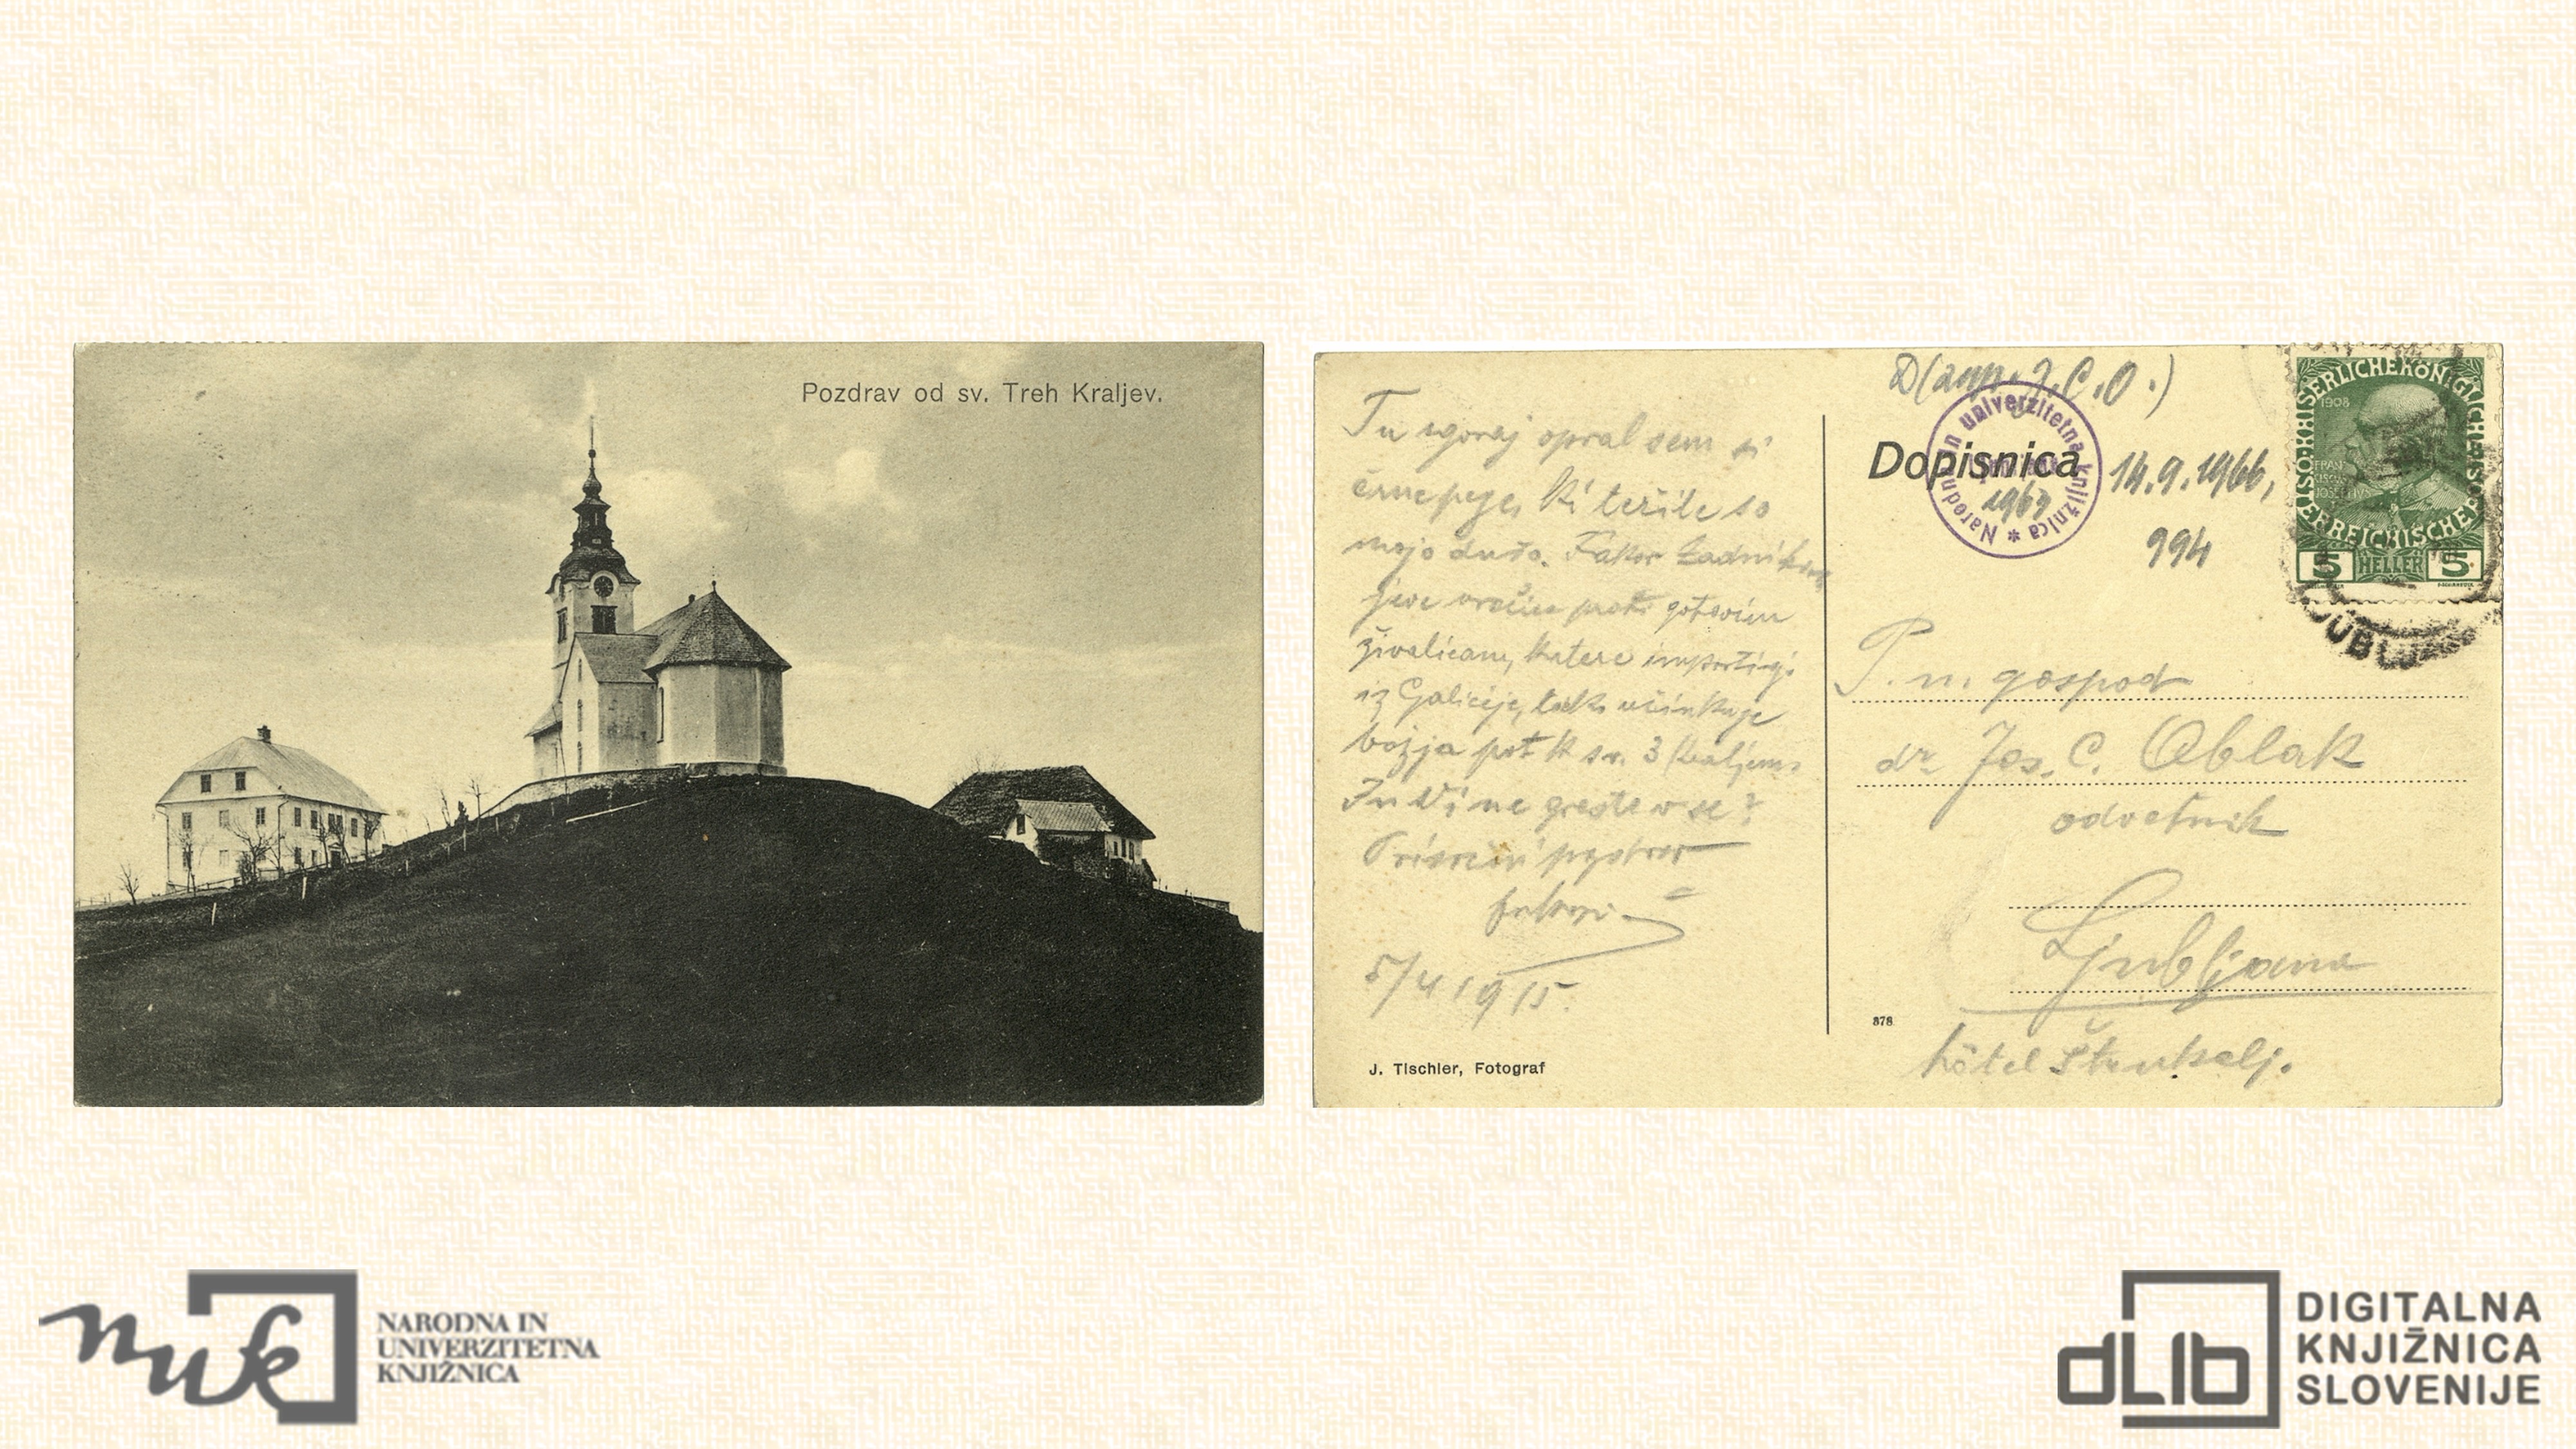 Pozdrav od sv. Treh Kraljev.
Tu zgoraj opral sem si
črne pege, ki težile so
mojo dušo. Kakor Zadnikar
jeve vrečice proti gotovim
živalicam, katere importirajo
iz Galicije, tako učinkuje
božja pot k sv. 3 Kraljem.
In Vi ne greste v se?
Prisrčni pozdrav
5/4 1915.
J. Tischler, Fotograf
D(zap. J.C.O.)
Dopisnica
Narodna in univerzitetna knjižnica *
1963
14.9.1966,
994
KAISERLICHE KÖNIGLICHE
ÖSTERREICHISCHE
1908
5 HELLER 5
LJUBLJ
P. n. gospod
dr. Jos. C. Oblak
odvetnik
Ljubljana
hôtel Štrukelj.
378
nuk
NARODNA IN
UNIVERZITETNA
KNJIŽNICA
dLib
DIGITALNA
KNJIŽNICA
SLOVENIJE